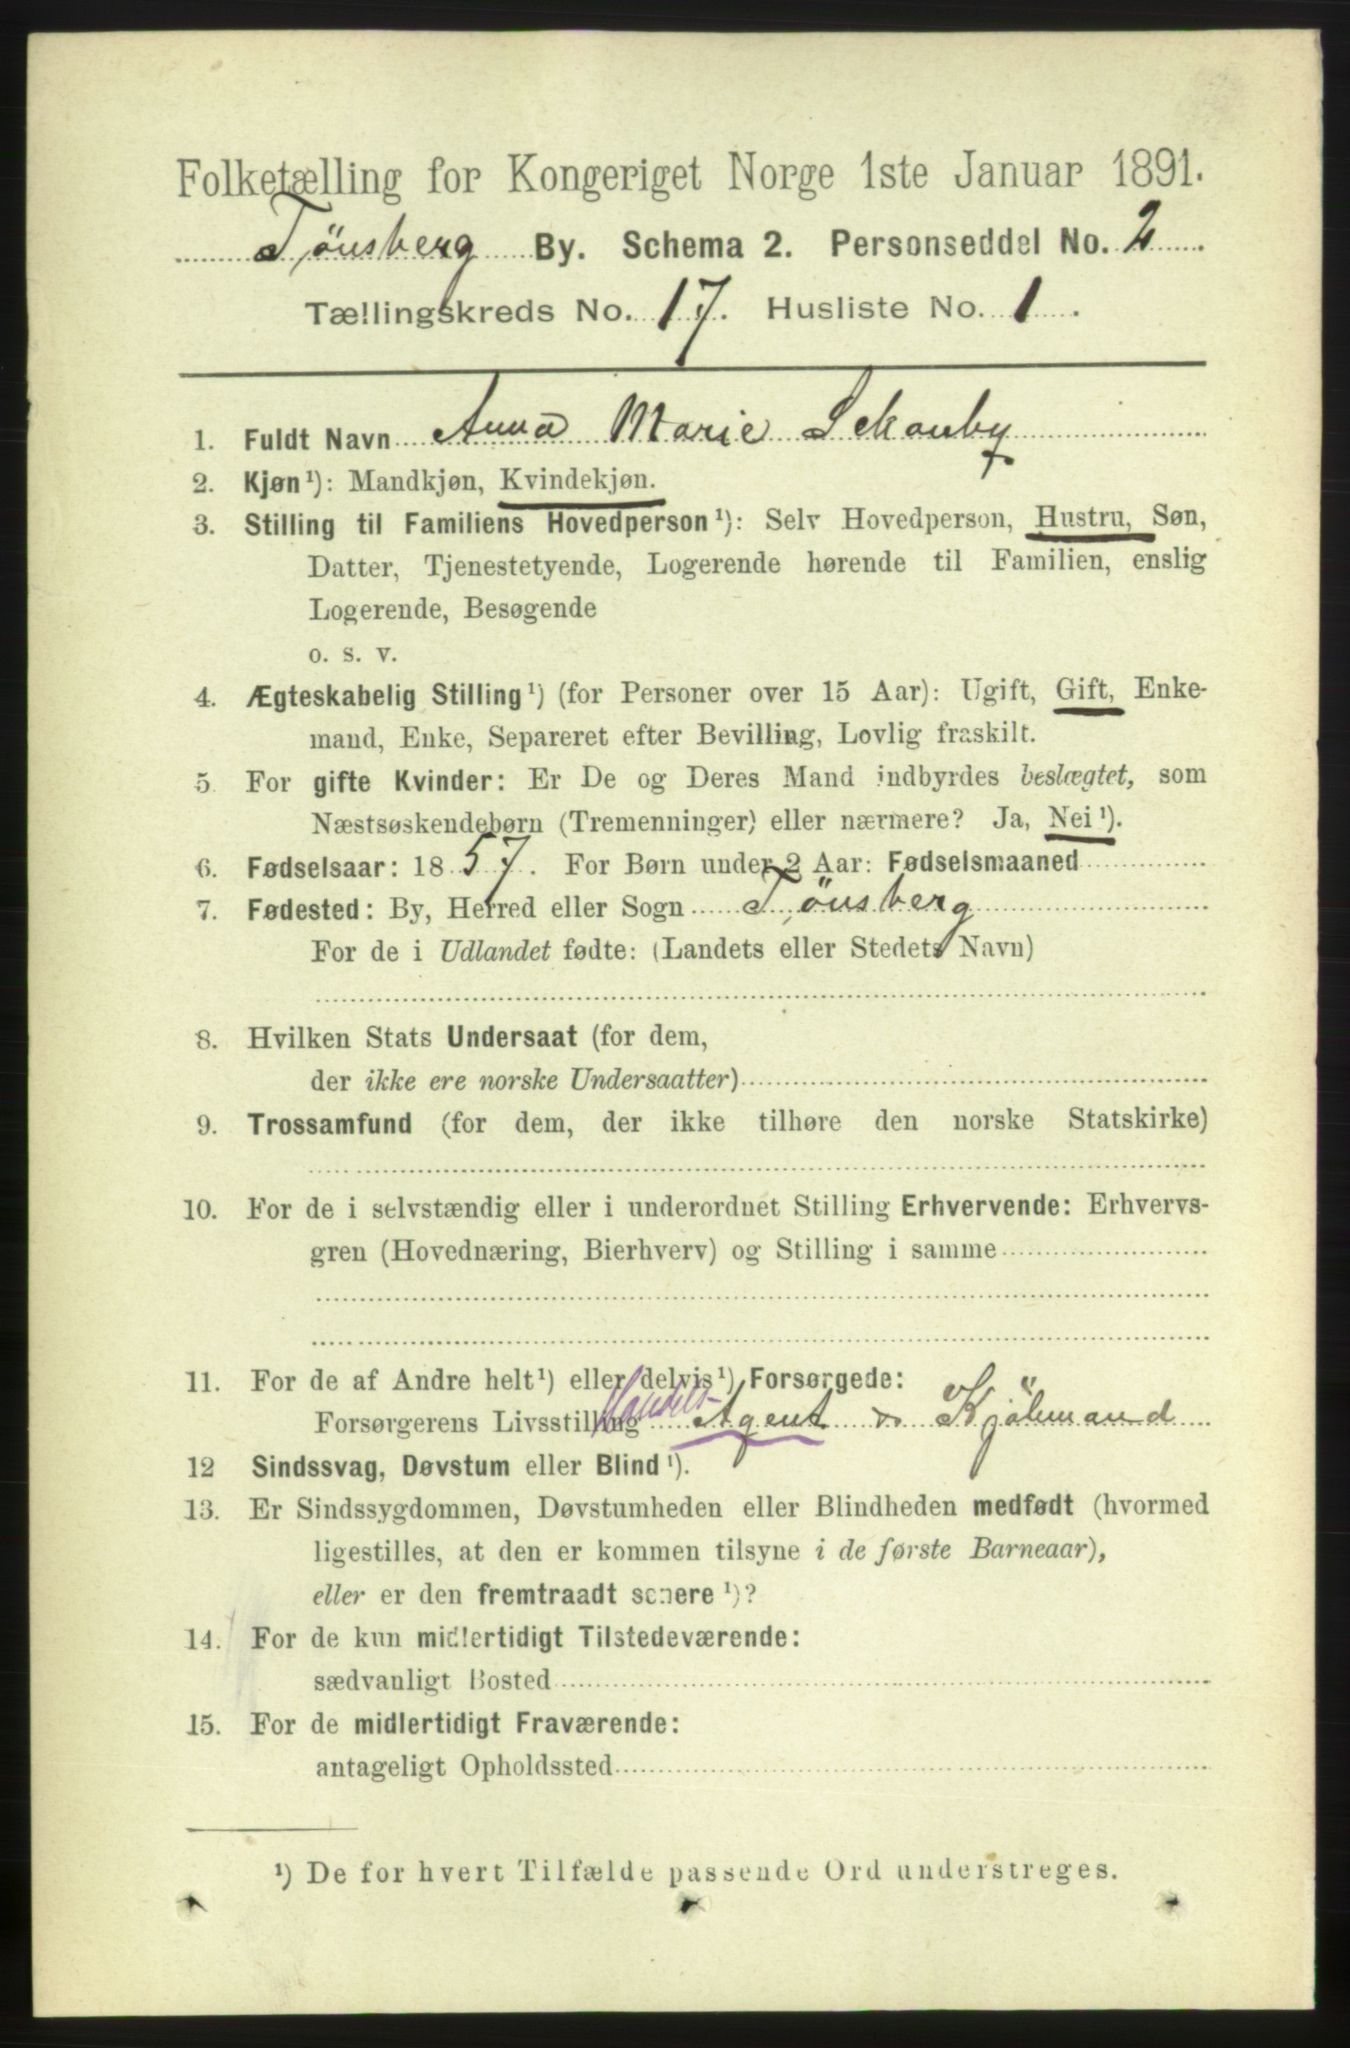 Folketælling for Kongeriget Norge 1ste Januar 1891.
Tønsberg By. Schema 2. Personseddel No. 2
Tællingskreds No. 17. Husliste No. 1.
1. Fuldt Navn Anna Marie
2. Kjøn¹): Mandkjøn, Kvindekjøn.
3. Stilling til Familiens Hovedperson¹): Selv Hovedperson, Hustru, Søn,
Datter, Tjenestetyende, Logerende hørende til Familien, enslig
Logerende, Besøgende
o. s. v.
4. Ægteskabelig Stilling¹) (for Personer over 15 Aar): Ugift, Gift, Enke-
mand, Enke, Separeret efter Bevilling, Lovlig fraskilt.
5 For gifte Kvinder: Er De og Deres Mand indbyrdes beslægtet, som
Næstsøskendebørn (Tremenninger) eller nærmere? Ja, Nei¹).
6. Fødselsaar: 1857. For Børn under 2 Aar: Fødselsmaaned
7. Fødested: By, Herred eller Sogn Tönsberg
For de i Udlandet fødte: (Landets eller Stedets Navn)
8. Hvilken Stats Undersaat (for dem,
der ikke ere norske Undersaatter)
9. Trossamfund (for dem, der ikke tilhøre den norske Statskirke)
10. For de i selvstændig eller i underordnet Stilling Erhvervende: Erhvervs-
gren (Hovednæring, Bierhverv) og Stilling i samme
11. For de af Andre helt¹) eller delvis¹) Forsørgede:
Forsørgerens Livsstilling Handels- Agent & Kjöbmand
12 Sindssvag, Døvstum eller Blind¹).
13. Er Sindssygdommen, Døvstumheden eller Blindheden medfødt (hvormed
ligestilles, at den er kommen tilsyne i de første Barneaar),
eller er den fremtraadt senere¹)?
14. For de kun midlertidigt Tilstedeværende:
sædvanligt Bosted
15. For de midlertidigt Fraværende:
antageligt Opholdssted
¹) De for hvert Tilfælde passende Ord understreges.